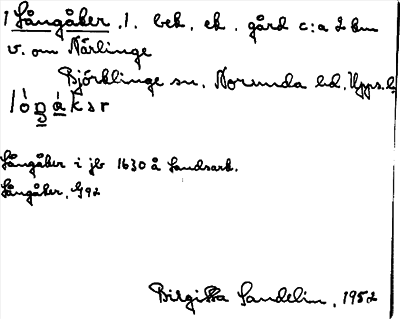 1 Långåker, 1. bek, ek. gård c:a 2 km
v. om Närlinge
Björklinge sn. Norunda hd. Upps. l.
lòŋákər
Långåker i jb 1630 å Landsark.
Långåker, G92
Birgitta Sandelin, 1952